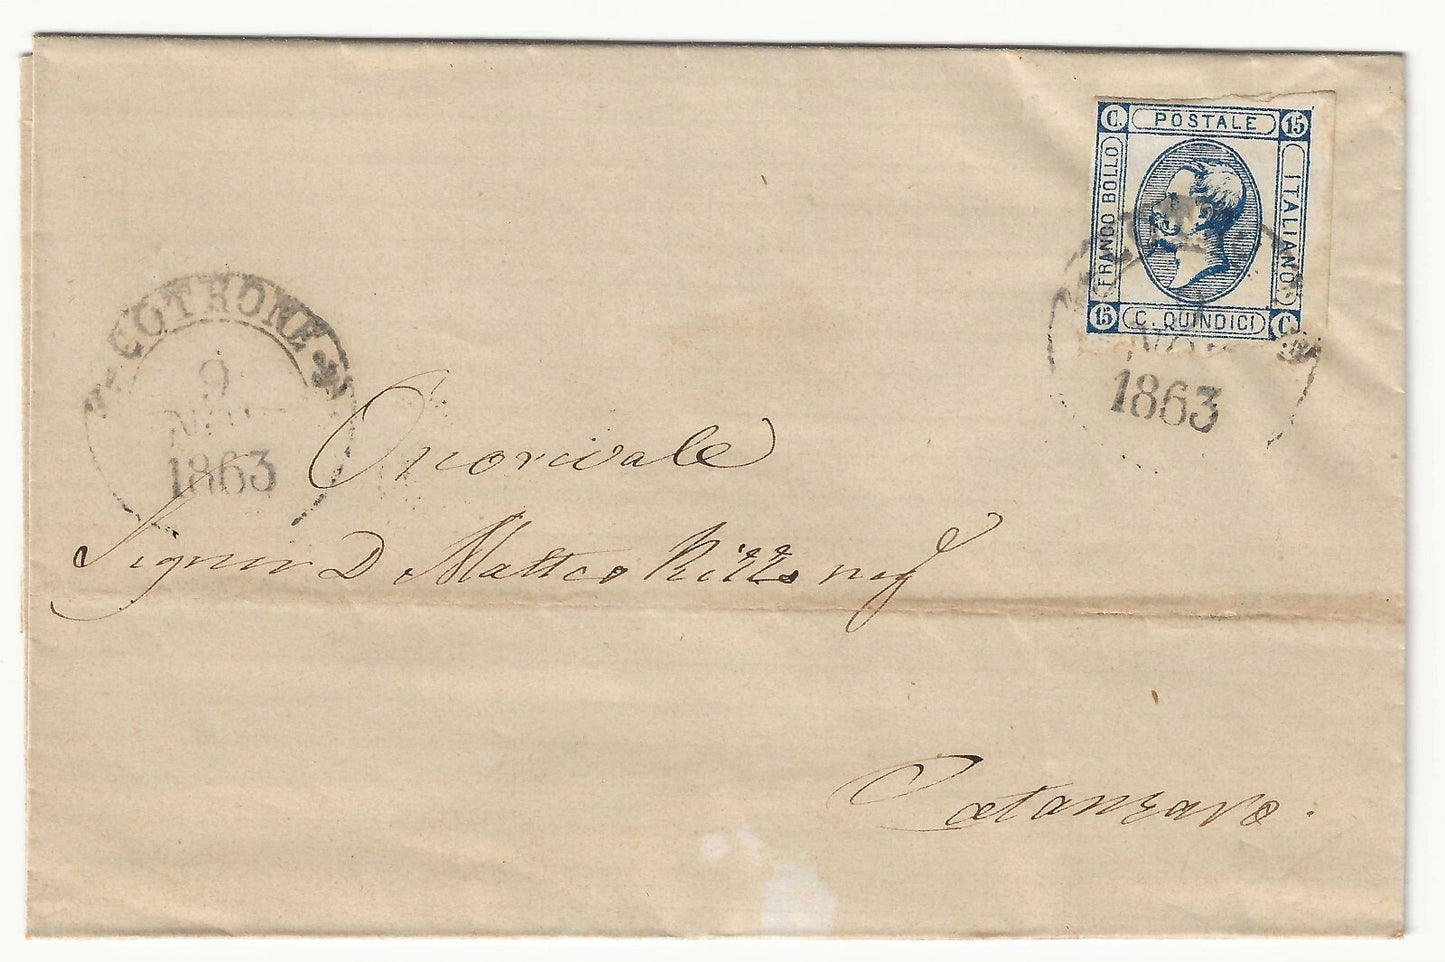 C. POSTALE 15
FRANCO BOLLO
ITALIANO
15 C. QUINDICI C.
1863
COTRONE
9
1863
Onorivale
Signor D Matteo Rizzo neg
Catanzaro.